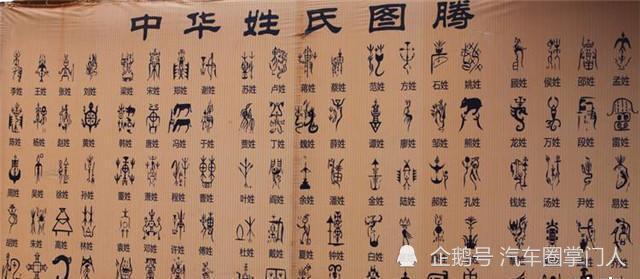 中华姓氏图腾
李姓 王姓 张姓 刘姓 梁姓 宋姓 郑姓 谢姓 苏姓 卢姓 蒋姓 蔡姓 范姓 方姓 石姓 姚姓 顾姓 侯姓 邵姓 孟姓
陈姓 杨姓 赵姓 黄姓 韩姓 唐姓 冯姓 于姓 贾姓 丁姓 魏姓 薛姓 谭姓 廖姓 邹姓 熊姓 龙姓 万姓 段姓 雷姓
周姓 吴姓 徐姓 孙姓 董姓 萧姓 程姓 曹姓 叶姓 阎姓 余姓 潘姓 金姓 陆姓 郝姓 孔姓 钱姓 汤姓 尹姓 易姓
胡姓 朱姓 高姓 林姓 袁姓 邓姓 许姓 傅姓 杜姓 戴姓 夏姓 钟姓 白姓
企鹅号 汽车圈掌门人